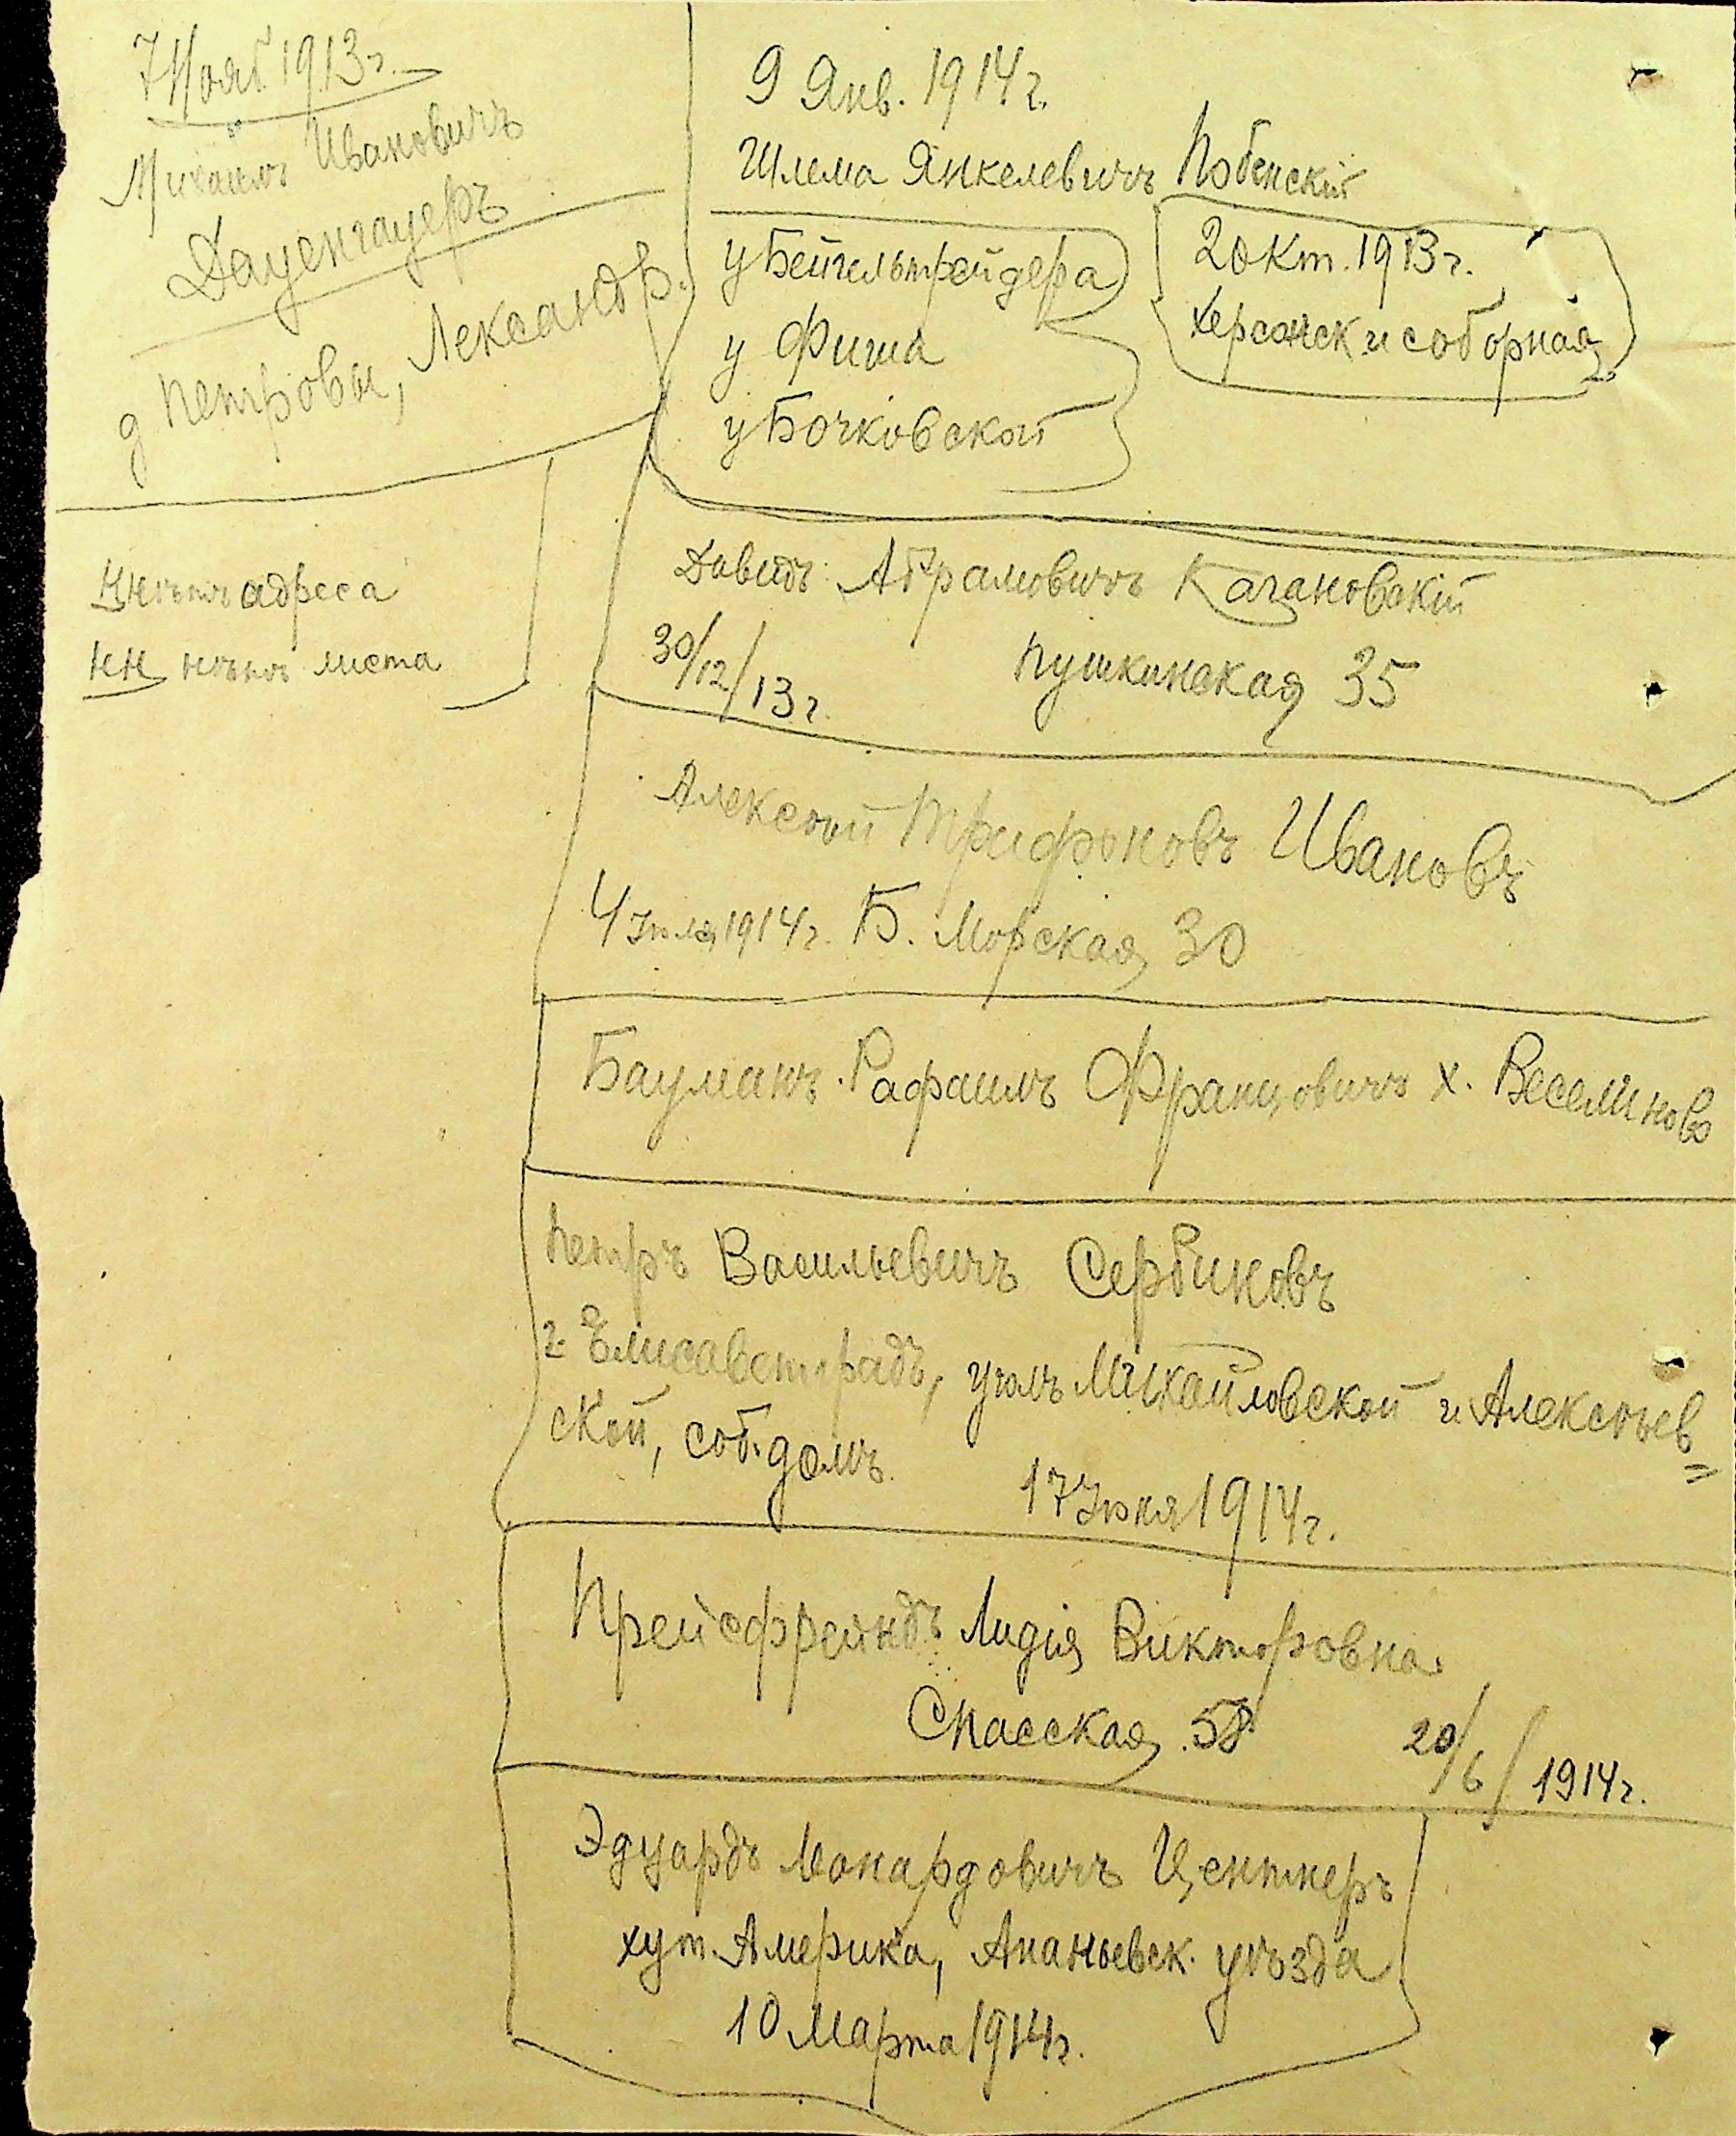 7 Нояб. 1913 г.
Михаилъ Ивановичъ
Дауенгауеръ
д Петровы, Лександр.
Н нѣтъ адреса
НН нѣтъ листа
9 Янв. 1914 г.
Шлема Янкелевичъ Лобенскій
у Бейгельтрейдера
у Фиша
у Бочковской
2 Окт. 1913 г.
Херсонск и соборная
Давидъ Абрамовичъ Качановскій
30/12/13 г. Пушкинская 35
Алексѣй Трифоновъ Ивановъ
4 Іюля 1914 г. Б. Морская 30
Бауманъ Рафаилъ Францовичъ х. Веселиново
Петръ Васильевичъ Сербиновъ
г. Елисаветградъ, уголъ Михайловской и Алексѣев=
ской, соб. домъ.
17 Іюня 1914 г.
Прейсфрейндъ Лидія Викторовна
Спасская 58 20/6/1914 г.
Эдуардъ Леонардовичъ Центнеръ
хут. Америка, Ананьевск. уѣзда
10 Марта 1914 г.